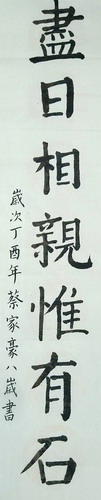 盡日相親惟有石
歲次丁酉年蔡家豪八歲書